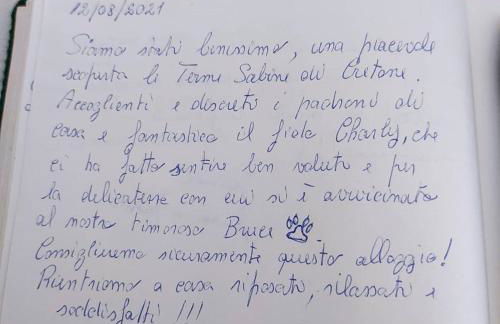 12/08/2021
Siamo stati benissimo, una piacevole
scoperta le Terme Sabine di Cretone.
Accoglienti e discreti i padroni di
casa e fantastico il fido Charly, che
ci ha fatto sentire ben voluti e per
la delicatezza con cui si è avvicinato
al nostro timoroso Bruce
Consiglieremo sicuramente questo alloggio!
Rientriamo a casa riposati, rilassati e
soddisfatti !!!